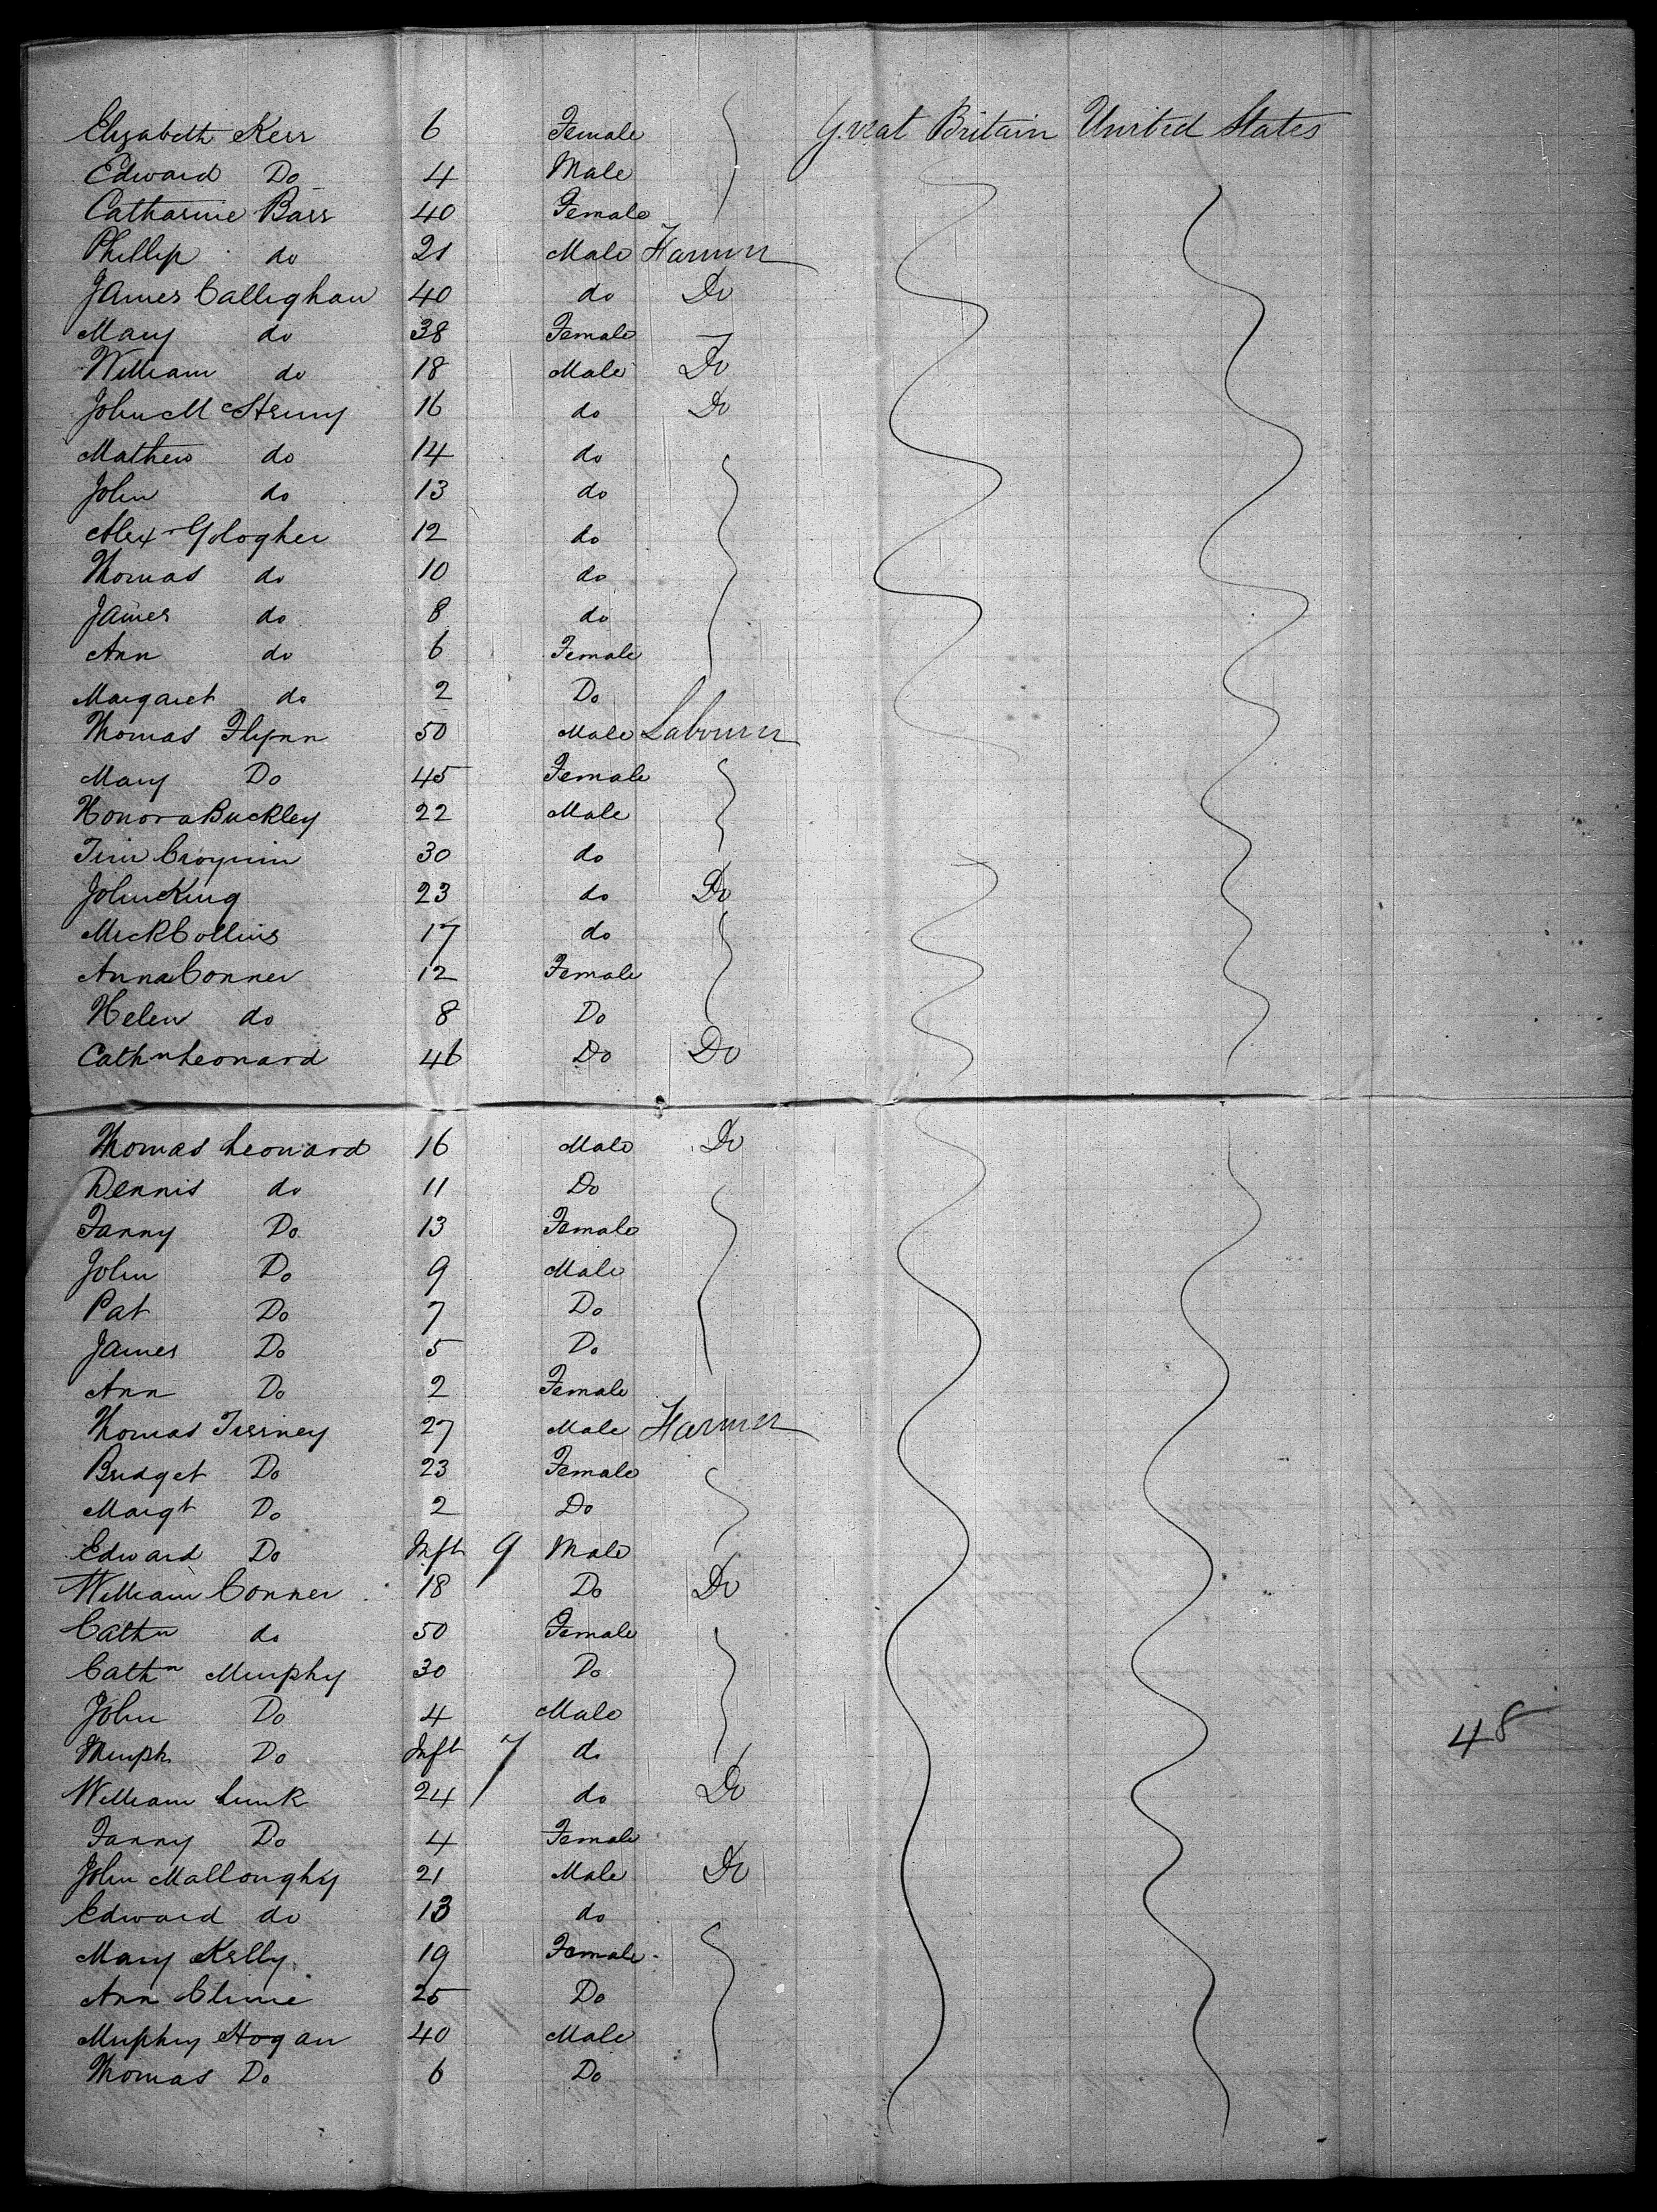 Elizabeth Kerr 6 Female Great Britain United States
Edward Do 4 Male
Catharine Barr 40 Female
Phillip do 21 Male Farmer
James Callighan 40 do Do
Mary do 38 Female
William do 18 Male Do
John 16 do Do
Mathew do 14 do
John do 13 do
Alex Gologher 12 do
Thomas do 10 do
James do 8 do
Ann do 6 Female
Margaret do 2 Do
Thomas Flynn 50 Male Labourer
Mary Do 45 Female
Honora Buckley 22 Male
Tim 30 do
John King 23 do Do
Mick Collins 17 do
Anna Conner 12 Female
Helen do 8 Do
Cathn Leonard 46 Do Do
Thomas Leonard 16 Male Do
Dennis do 11 Do
Fanny Do 13 Female
John Do 9 Male
Pat Do 7 Do
James Do 5 Do
Ann Do 2 Female
Thomas Tierney 27 Male Farmer
Bridget Do 23 Female
Margt Do 2 Do
Edward Do Inft 9 Male
William Conner 18 Do Do
Cathn do 50 Female
Cathn Murphy 30 Do
John Do 4 Male
Murph Do Inft 7 do
48
William Lunk 24 do Do
Fanny Do 4 Female
John Malloughy 21 Male Do
Edward do 13 do
Mary Kelly 19 Female
Ann Clune 25 Do
Murphy Hogan 40 Male
Thomas Do 6 Do